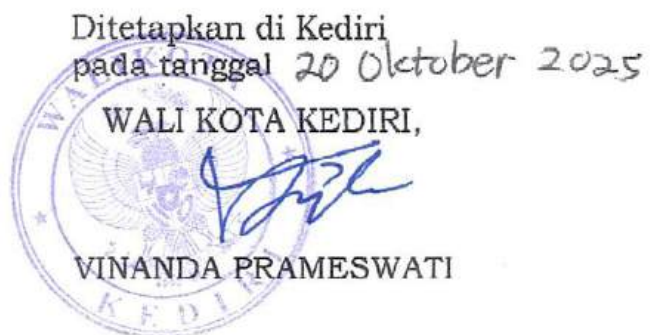 Ditetapkan di Kediri
pada tanggal 20 Oktober 2025
WALI KOTA KEDIRI,
VINANDA PRAMESWATI
WALI KOTA
KEDIRI